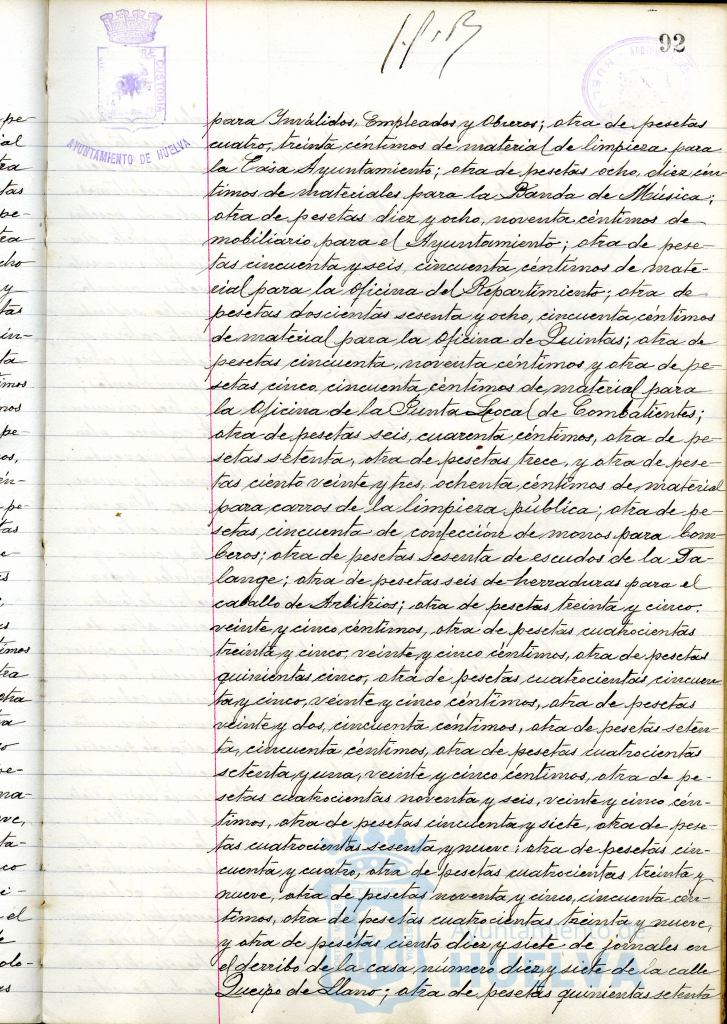 92
CUSTODIA
AYUNTAMIENTO DE HUELVA
para Inválidos, Empleados y Obreros; otra de pesetas
cuatro, treinta céntimos de material de limpieza para
la Casa Ayuntamiento; otra de pesetas ocho, diez cén
timos de materiales para la Banda de Música;
otra de pesetas diez y ocho, noventa céntimos de
mobiliario para el Ayuntamiento; otra de pese-
tas cincuenta y seis, cincuenta céntimos de mate-
rial para la oficina del Repartimiento; otra de
pesetas doscientas sesenta y ocho, cincuenta céntimos
de material para la Oficina de Quintas; otra de
pesetas cincuenta, noventa céntimos y otra de pe-
setas cinco, cincuenta céntimos de material para
la Oficina de la Junta Local de Combatientes;
otra de pesetas seis, cuarenta céntimos, otra de pe-
setas setenta, otra de pesetas trece, y otra de pese-
tas ciento veinte y tres, ochenta céntimos de material
para carros de la limpieza pública; otra de pe-
setas cincuenta de confección de monos para bom-
beros; otra de pesetas sesenta de escudos de la Fa-
lange; otra de pesetas seis de herraduras para el
caballo de Arbitrios; otra de pesetas treinta y cinco,
veinte y cinco céntimos, otra de pesetas cuatrocientas
treinta y cinco, veinte y cinco céntimos, otra de pesetas
quinientas cinco, otra de pesetas cuatrocientas cincuen
ta y cinco, veinte y cinco céntimos, otra de pesetas
veinte y dos, cincuenta céntimos, otra de pesetas seten-
ta, cincuenta céntimos, otra de pesetas cuatrocientas
setenta y una, veinte y cinco céntimos, otra de pe-
setas cuatrocientas noventa y seis, veinte y cinco cén-
timos, otra de pesetas cincuenta y siete, otra de pese-
tas cuatrocientas sesenta y nueve; otra de pesetas cin-
cuenta y cuatro, otra de pesetas cuatrocientas treinta y
nueve, otra de pesetas noventa y cinco, cincuenta cén-
timos, otra de pesetas cuatrocientas treinta y nueve,
y otra de pesetas ciento diez y siete de jornales en
el derribo de la casa número diez y siete de la calle
Queipo de Llano; otra de pesetas quinientas setenta
Ayuntamiento de
HUELVA